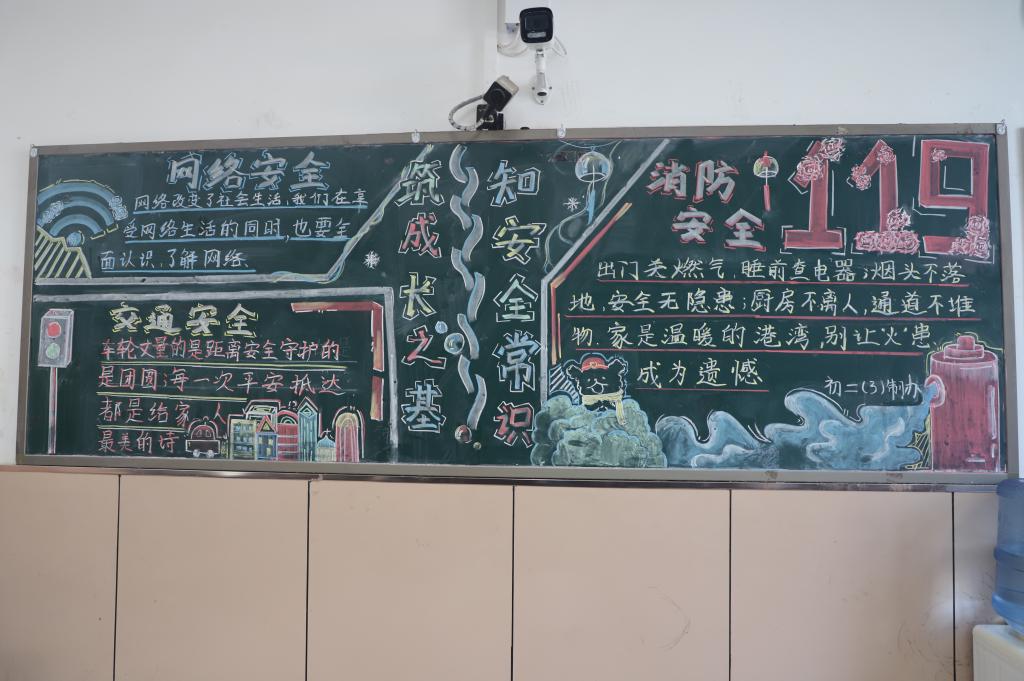 网络安全
网络改变了社会生活,我们在享
受网络生活的同时,也要全
面认识,了解网络.
交通安全
车轮丈量的是距离安全守护的
是团圆;每一次平安抵达
都是给家人
最美的诗
筑成长之基
知安全常识
消防
安全
119
出门关燃气,睡前查电器;烟头不落
地,安全无隐患;厨房不离人,通道不堆
物.家是温暖的港湾,别让火患
成为遗憾
初二(3)制办